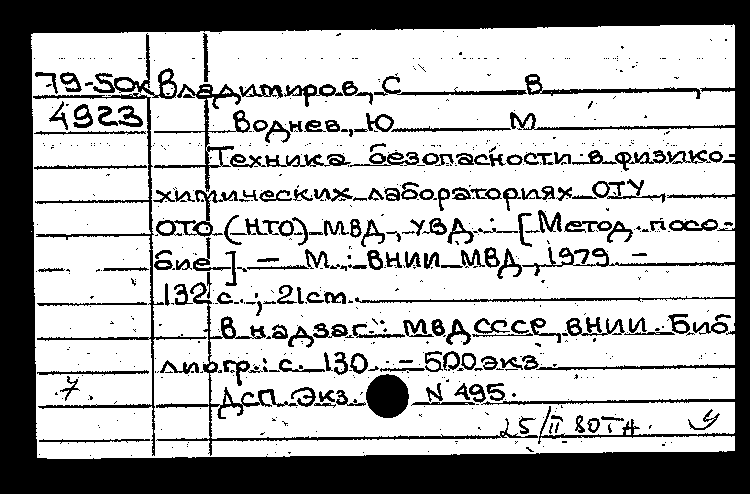 79-50к Владимиров, С В ,
4923 Воднев, Ю М
Техника безопасности в физико-
химических лабораториях ОТУ,
ОТО (НТО) МВД, УВД.: [Метод. посо-
бие]. – М.: ВНИИ МВД, 1979 –
132 с.; 21 см.
В надзаг.: МВД СССР, ВНИИ. Биб
лиогр.: с. 130. – 500 экз
7. ДСП. Экз. N 495.
25/II 80